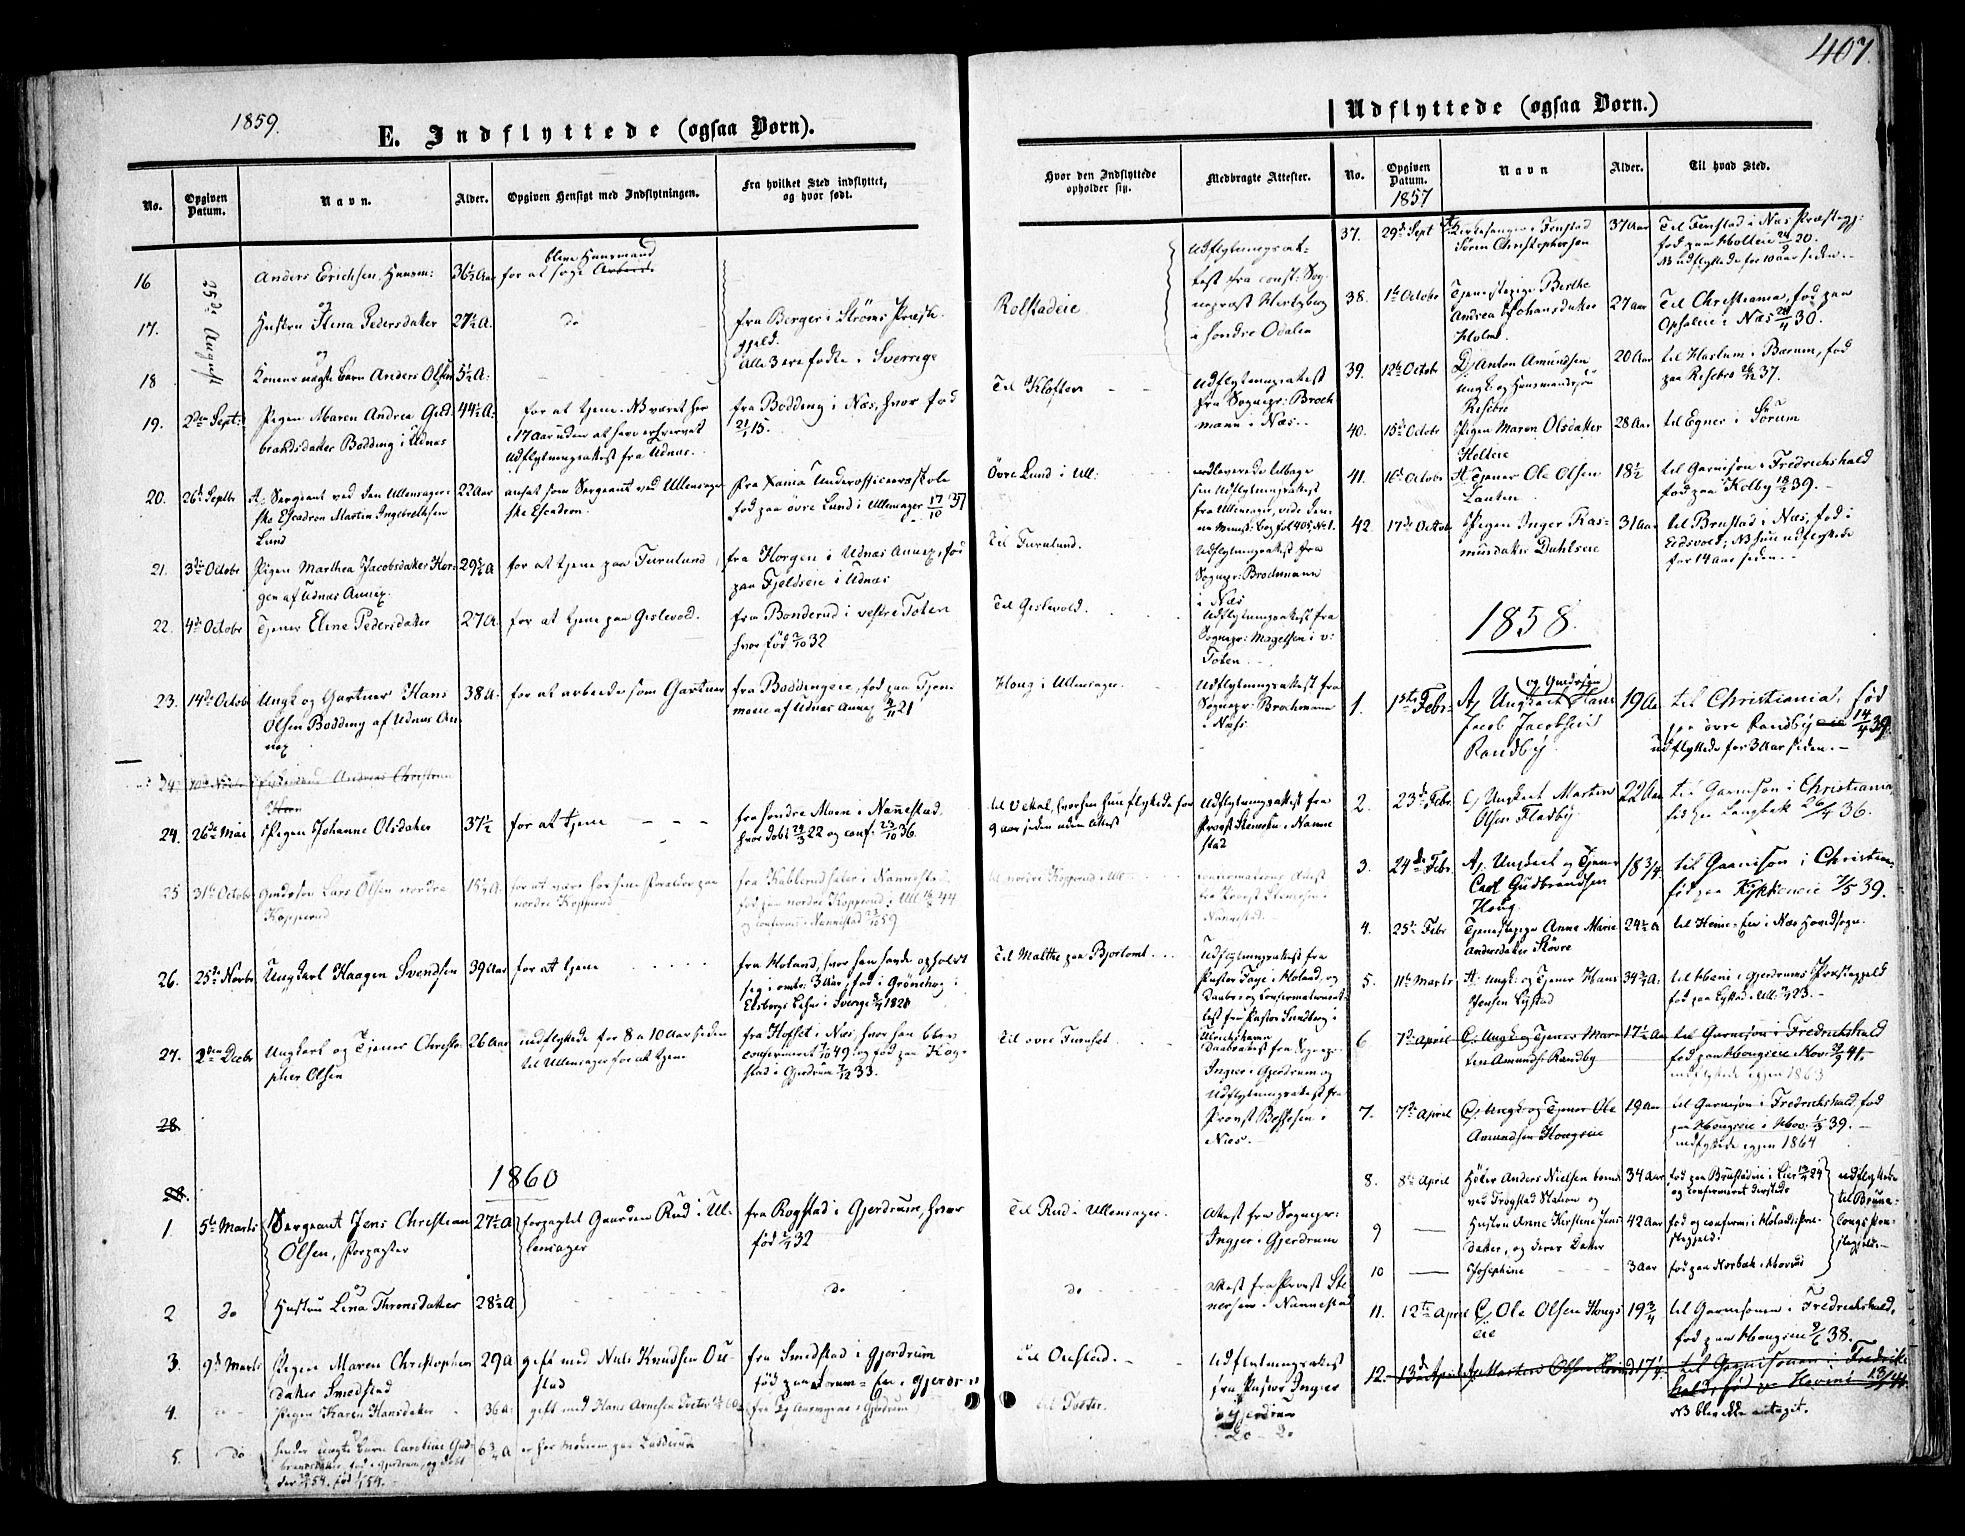 407.
1859.
E. Indflyttede (ogsaa Børn).
No.
Opgiven Datum.
Navn.
Alder.
Opgiven Hensigt med Indflytningen.
Fra hvilket Sted indflyttet, og hvor født.
Hvor den Indflyttede opholder sig.
Medbragte Attester.
16
25de August
Anders Erichsen, Huusm:
36½ Aar
blive Huusmand
for at søge Arbeide
17.
og
Hustru Stena Pedersdatter
27½ A.
do
fra Berger i Strøms Præste
gjeld.
18
og
Konens uægte Barn Anders Olsen
5½ A.
Alle 3 ere fødte i Sverrige
Rolstadeie
Udflytningsat-
test fra const: Sog-
nepræst Hertzberg
i søndre Odalen
19.
2den Sept:
Pigen Maren Andrea Gud-
brandsdatter Bodding i Udnæs
44½ A.
for at tjene. NB været her
i 17 Aar uden at have erhvervet
Udflytningsattest fra Udnæs.
fra Bodding i Næs, hvor fød
21/1 15.
Til Kløften
Udflytningsattest
fra Sognepr: Broch
mann i Næs.
20.
26de Septbr
A, Sergeant ved den Ullensager-
ske Escadron Martin Ingebrethsen
Lund
22 Aar
ansat som Sergeant ved Ullensager
ske Escadron.
fra Xania Underofficeersskole
fød paa øvre Lund i Ullensager 17/10 37
Øvre Lund i Ull:
medleverede tilbage
sin Udflytningsattest
fra Ullensager, vide den-
ne Minist: Bog fol 405, No 1.
21.
3die Octobr
Pigen Marthea Jacobsdatter Hor-
gen af Udnæs Annex.
29½ A
for at tjene paa Furulund
fra Horgen i Udnæs Annex, fød
paa Fjeldseie i Udnæs
Til Furulund.
Udflytningsattest fra
Sognepr: Brochmann
i Næs
22.
4de Octobr
Tjener Eline Pedersdatter
27 A.
for at tjene paa Gislevold.
fra Bonderud i vestre Toten
hvor fød 2/10 32
Til Gislevold.
Udflytningsattest fra
Sognepr: Magelsen i v:
Toten
23.
14de Octobr
Ungk og Gartner Hans
Olsen Bodding af Udnæs An-
nex
38 A.
for at arbeide som Gartner
fra Boddingeie, fød paa Tjene
moen af Udnæs Annex 9/11 21
Haug i Ullensager.
Udflytningsattest fra
Sognepr: Brochmann
i Næss.
24.
Andreas Christian
24.
26de Mai
Pigen Johanne Olsdatter
37½
for at tjene
fra søndre Moen i Nannestad,
hvor døbt 24/3 22 og conf: 23/10 36.
til Vekal, hvorhen hun flyttede for
9 Aar siden uden Attest
Udflytningsattest fra
Provst Stenersen i Nanne
stad
25
31te Octobr
Gaardsøn Lars Olsen nordre
Kopperud
15½ A.
for at være hos sine Forældre paa
nordre Kopperud
i Nannestad,
fød paa nordre Kopperud i Ull: 44
og confirm: i Nannestad 59
til nordre Kopperud i Ull
confirmations Attest
fra Provst Stenersen i
Nannestad.
26.
25de Novbr
Ungkarl Haagen Svendsen
39 Aar
for at tjene
fra Høland, hvor han havde opholdt
sig i omtr: 3 Aar, fød i Grönehög i
Elsborgs Lehn i Sverige 1820
Til Malthe paa Bjørtomt
Udflytningsattest fra
Pastor Faye i Høland, og
Daabs- og Confirmationsat-
test fra Pastor Sundberg i
Ulrichshavn
27.
2den Decbr
Ungkarl og Tjener Christo
pher Olsen
26 Aar
indflyttede for 8 a 10 Aar siden
til Ullensager for at tjene
fra Hofset i Næs, hvor han blev
confirmeret 7/10 49, og fød paa Kog-
stad i Gjerdrum 7/12 33.
Til øvre Furuset
Daabsattest fra Sognepr:
Ingier i Gjerdrum og
Udflytningsattest fra
Provst Boyesen i
Næs.
28.
1860
28.
1
5te Marts
Sergeant Jens Christian
Olsen, Forpagter
27½ A
forpagtet Gaarden Rud i Ul-
lensager
fra Rogstad i Gjerdrum, hvor
fød 32
Til Rud i Ullensager.
Attest fra Sognepr:
Ingier i Gjerdrum
2
do
og
Hustru Lina Thronsdatter
28½ A
do
do
Attest fra Provst Ste
nersen i Nannestad
3.
9de Marts
Pigen Maren Christophers
datter Smedstad
29 A
gift med Niels Knudsen Ou-
stad
fra Smedstad i Gjerdrum
fød paa i Gjerdrum
Til Oustad.
Udflytningsattest
fra Pastor Ingier
i Gjerdrum
4.
do
Pigen Karen Hansdatter
36 A.
gift med Hans Arnesen Toeter
i Gjerdrum
til Toeter.
do do
5.
do
hendes uægte Barn Caroline Gud-
brandsdatter, fød i Gjerdrum, og døbt
der 54. fød 54.
6¾ A
er hos Moderen paa
Udflyttede (ogsaa Børn.)
No.
Opgiven Datum.
Navn
Alder.
Til hvad Sted.
1857
37.
29de Sept
Kirkesanger i Fenstad
Søren Christophersen
37 Aar
Til Fenstad i Næs Præstegj:
fød paa Holteie 24/9 20.
NB udflyttede for 10 Aar siden.
38.
1ste Octobr
Tjenestepige Berthe
Andrea Johansdatter
Holm
27 Aar
Til Christiania, fød paa
Ophaleie i Næs 28/4 30.
39.
12te Octobr
D, Anton Amundsen
Ungk. og Huusmandssøn
Risebro
20 Aar
til Haslum i Bærum, fød
paa Risebro 26/12 37.
40.
15de Octobr
Pigen Maren Olsdatter
Holteie
28 Aar
til Egner i Sørum
41.
16de Octobr
A, Tjener Ole Olsen
Lauten
18½
til Garnison i Fredrichshald
fød paa Kolby 18/2 39.
42.
17de Octob
Pigen Inger Ras-
musdatter Dahlseie
31 Aar
til Brustad i Næs, fød i
Eidsvold; NB hun udflyttede
for 14 Aar siden.
1858.
1.
1ste Febr.
A, Ungkarl (og Gaardsøn) Hans
Jacob Jacobsen
Randby
19 Aar
til Christiania, fød
paa øvre Randby 14/4 39.
udflyttede for 3 Aar siden.
2.
23de Febr.
C, Ungkarl Martin
Olsen Fladby
22 Aar
til Garnison i Christiania
fød paa Langbak 26/4 36.
3.
24de Febr.
A, Ungkarl og Tjener
Carl Gudbrandsen
Haug
18 3/4
til Garnison i Christian
fød paa Kopkeneie 7/5 39.
4.
25de Febr
Tjenestepige Anne Marie
Andersdatter Skovre
24½ A
til Henni-Eie i Næs Hovedsogn.
5.
11te Marts
A, Ungk: og Tjener Hans
Jensen Lystad
34¾ A:
til Mæni i Gjerdrums Præstegjeld
fød paa Lystad i Ull: 23.
6
7de April
C, Ungk og Tjener Mar-
tin Amunds: Randby
17½ Aar
til Garnison i Fredrichshald
fød paa Haugseie Hov: 41.
indflyttede igjen 1863
7.
7de April
C, Ungk. og Tjener Ole
Amundsen Haugseie
19 Aar
til Garnison i Fredrichshald, fød
paa Haugseie i Hov: 1/3 39.
indflyttede igjen 1864
8.
8de April
Anders Nielsen boende
ved Trøgstad Station og
34 Aar
fød paa Brustadeie i Lier 24
og confirmeret dersteds
9
Hustru Anne Kirstine Jens
datter, og deres Datter
42 Aar
fød og confirm: i Hølands Præ-
stegjeld
10
Josephine
3 Aar
fød paa Norbak i Hovin
udflyttede
til
11.
12te April
C, Ole Olsen Haugs
eie
19¾
til Garnisonen i Fredrickshald,
fød paa Haugseie 38.
12.
13de April
A, Morten Olsen
17½
til Garnisonen i Fredriks
hald, fød paa Hovin 13/ 41
NB blev ikke antaget.